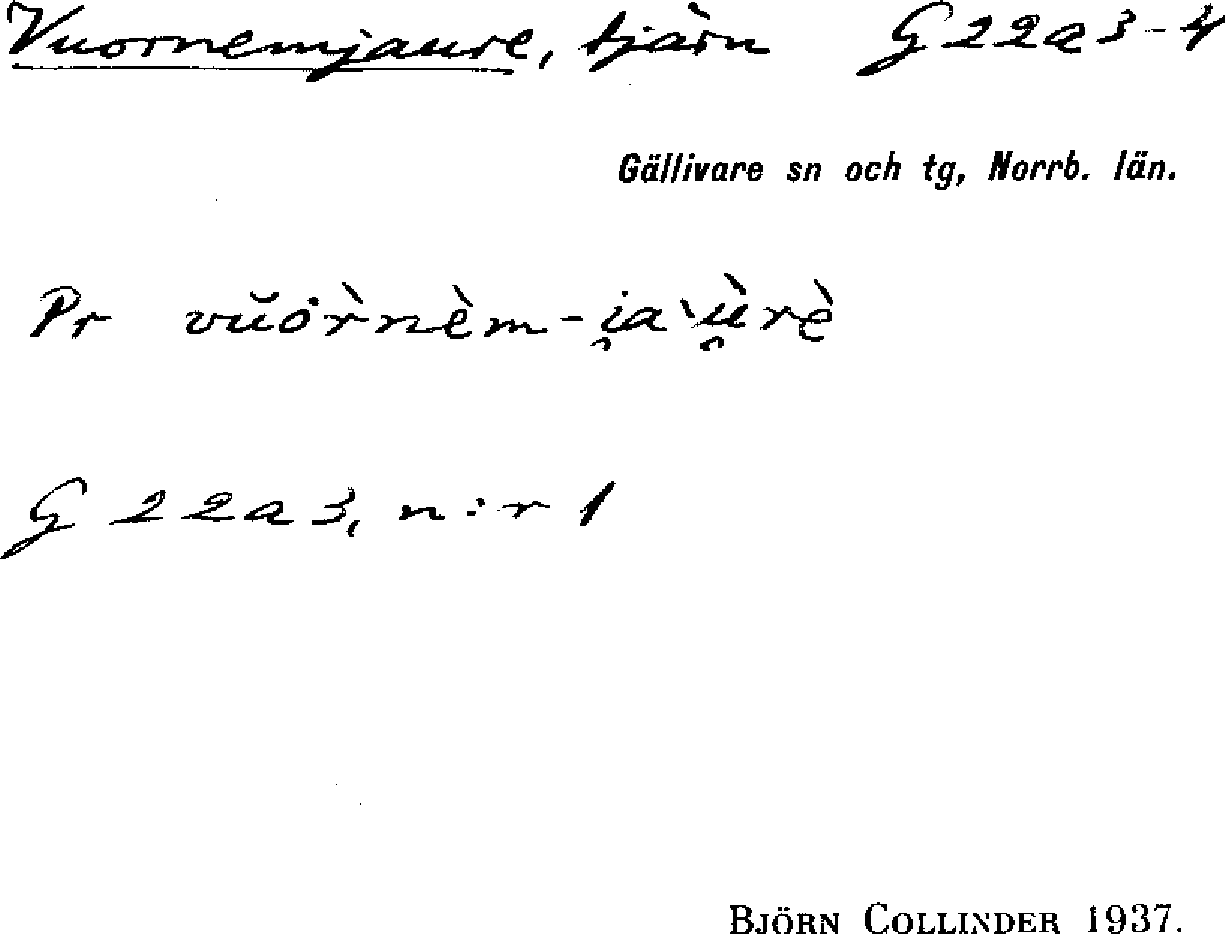 Vuornemjaure, tjärn G22a3-4
Gällivare sn och tg, Norrb. län.
Pr vŭȯr̀nèm-i̯a`ù̯rè
G22a3, n:r 1
BJÖRN COLLINDER 1937.